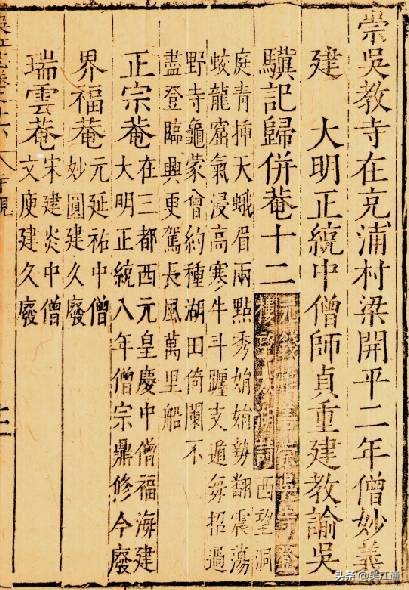 崇吳教寺在充浦村梁開平二年僧妙義
建　大明正統中僧師貞重建教諭吳
驥記歸併菴十二
西望洞
庭青插天蛾眉兩點秀娟娟勢翻震蕩
蛟龍窟氣浸高寒牛斗躔支遁每招過
野寺龜蒙曾約種湖田倚闌不
盡登臨興更駕長風萬里船
正宗菴
在三都西元皇慶中僧福海建
大明正統八年僧宗鼎修今廢
界福菴
元延祐中僧
妙圓建久廢
瑞雲菴
宋建炎中僧
文庚建久廢